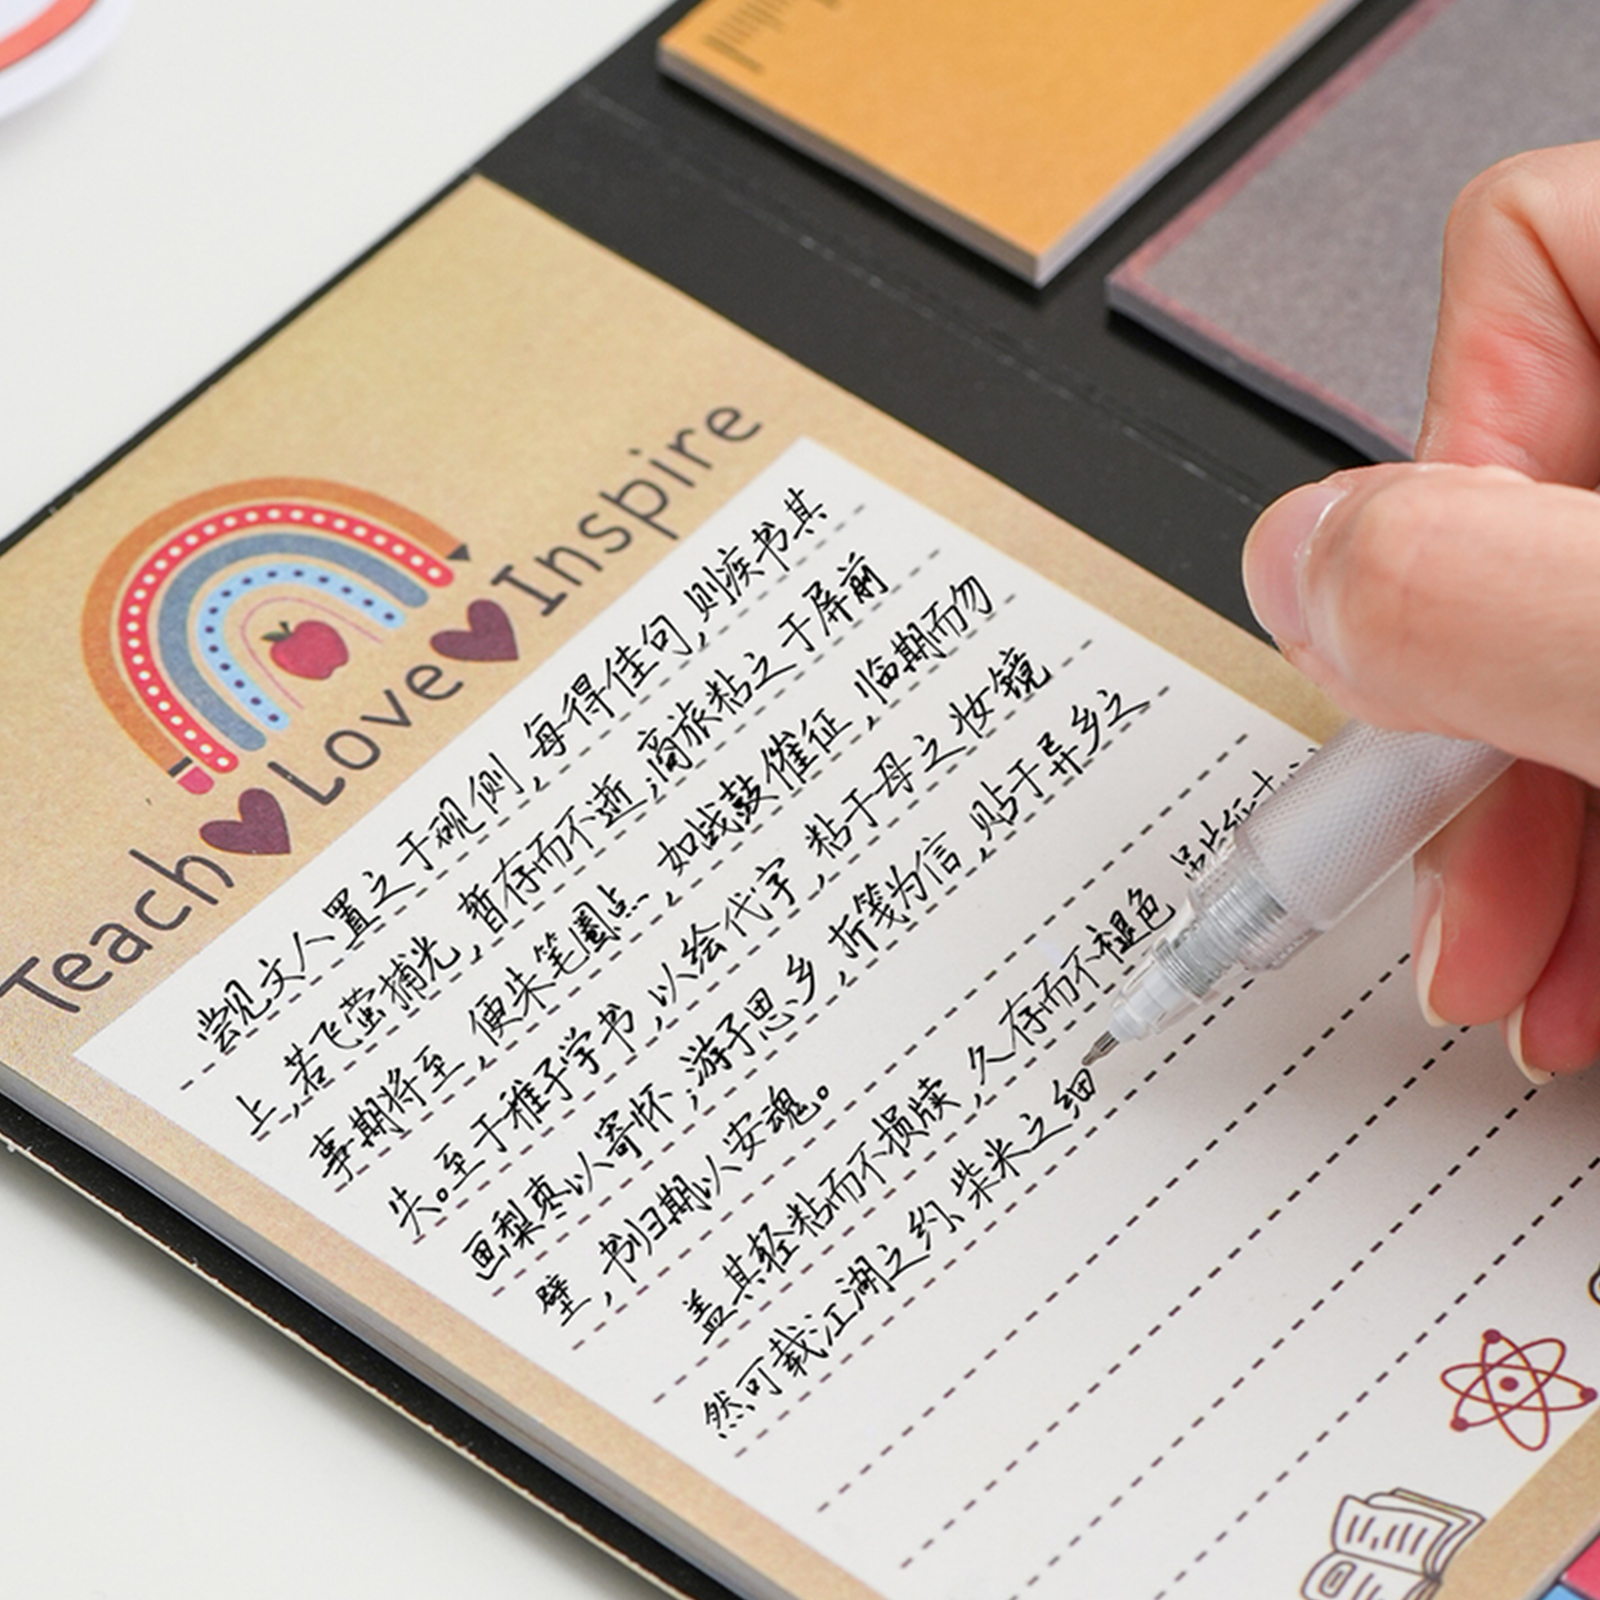 Teach Love Inspire
尝观文人置之于砚侧,每得佳句,则疾书其
上,若飞萤捕光,暂存而不逝;商旅粘之于屏前
事期将至,便朱笔圈点,如战鼓催征,临期而勿
失。至于稚子学书,以绘代字,粘于母之妆镜
画梨枣以寄怀;游子思乡,折笺为信,贴于异乡之
壁,书归期以安魂。
盖其轻粘而不损牍,久存而不褪色
然可载江湖之约、柴米之细